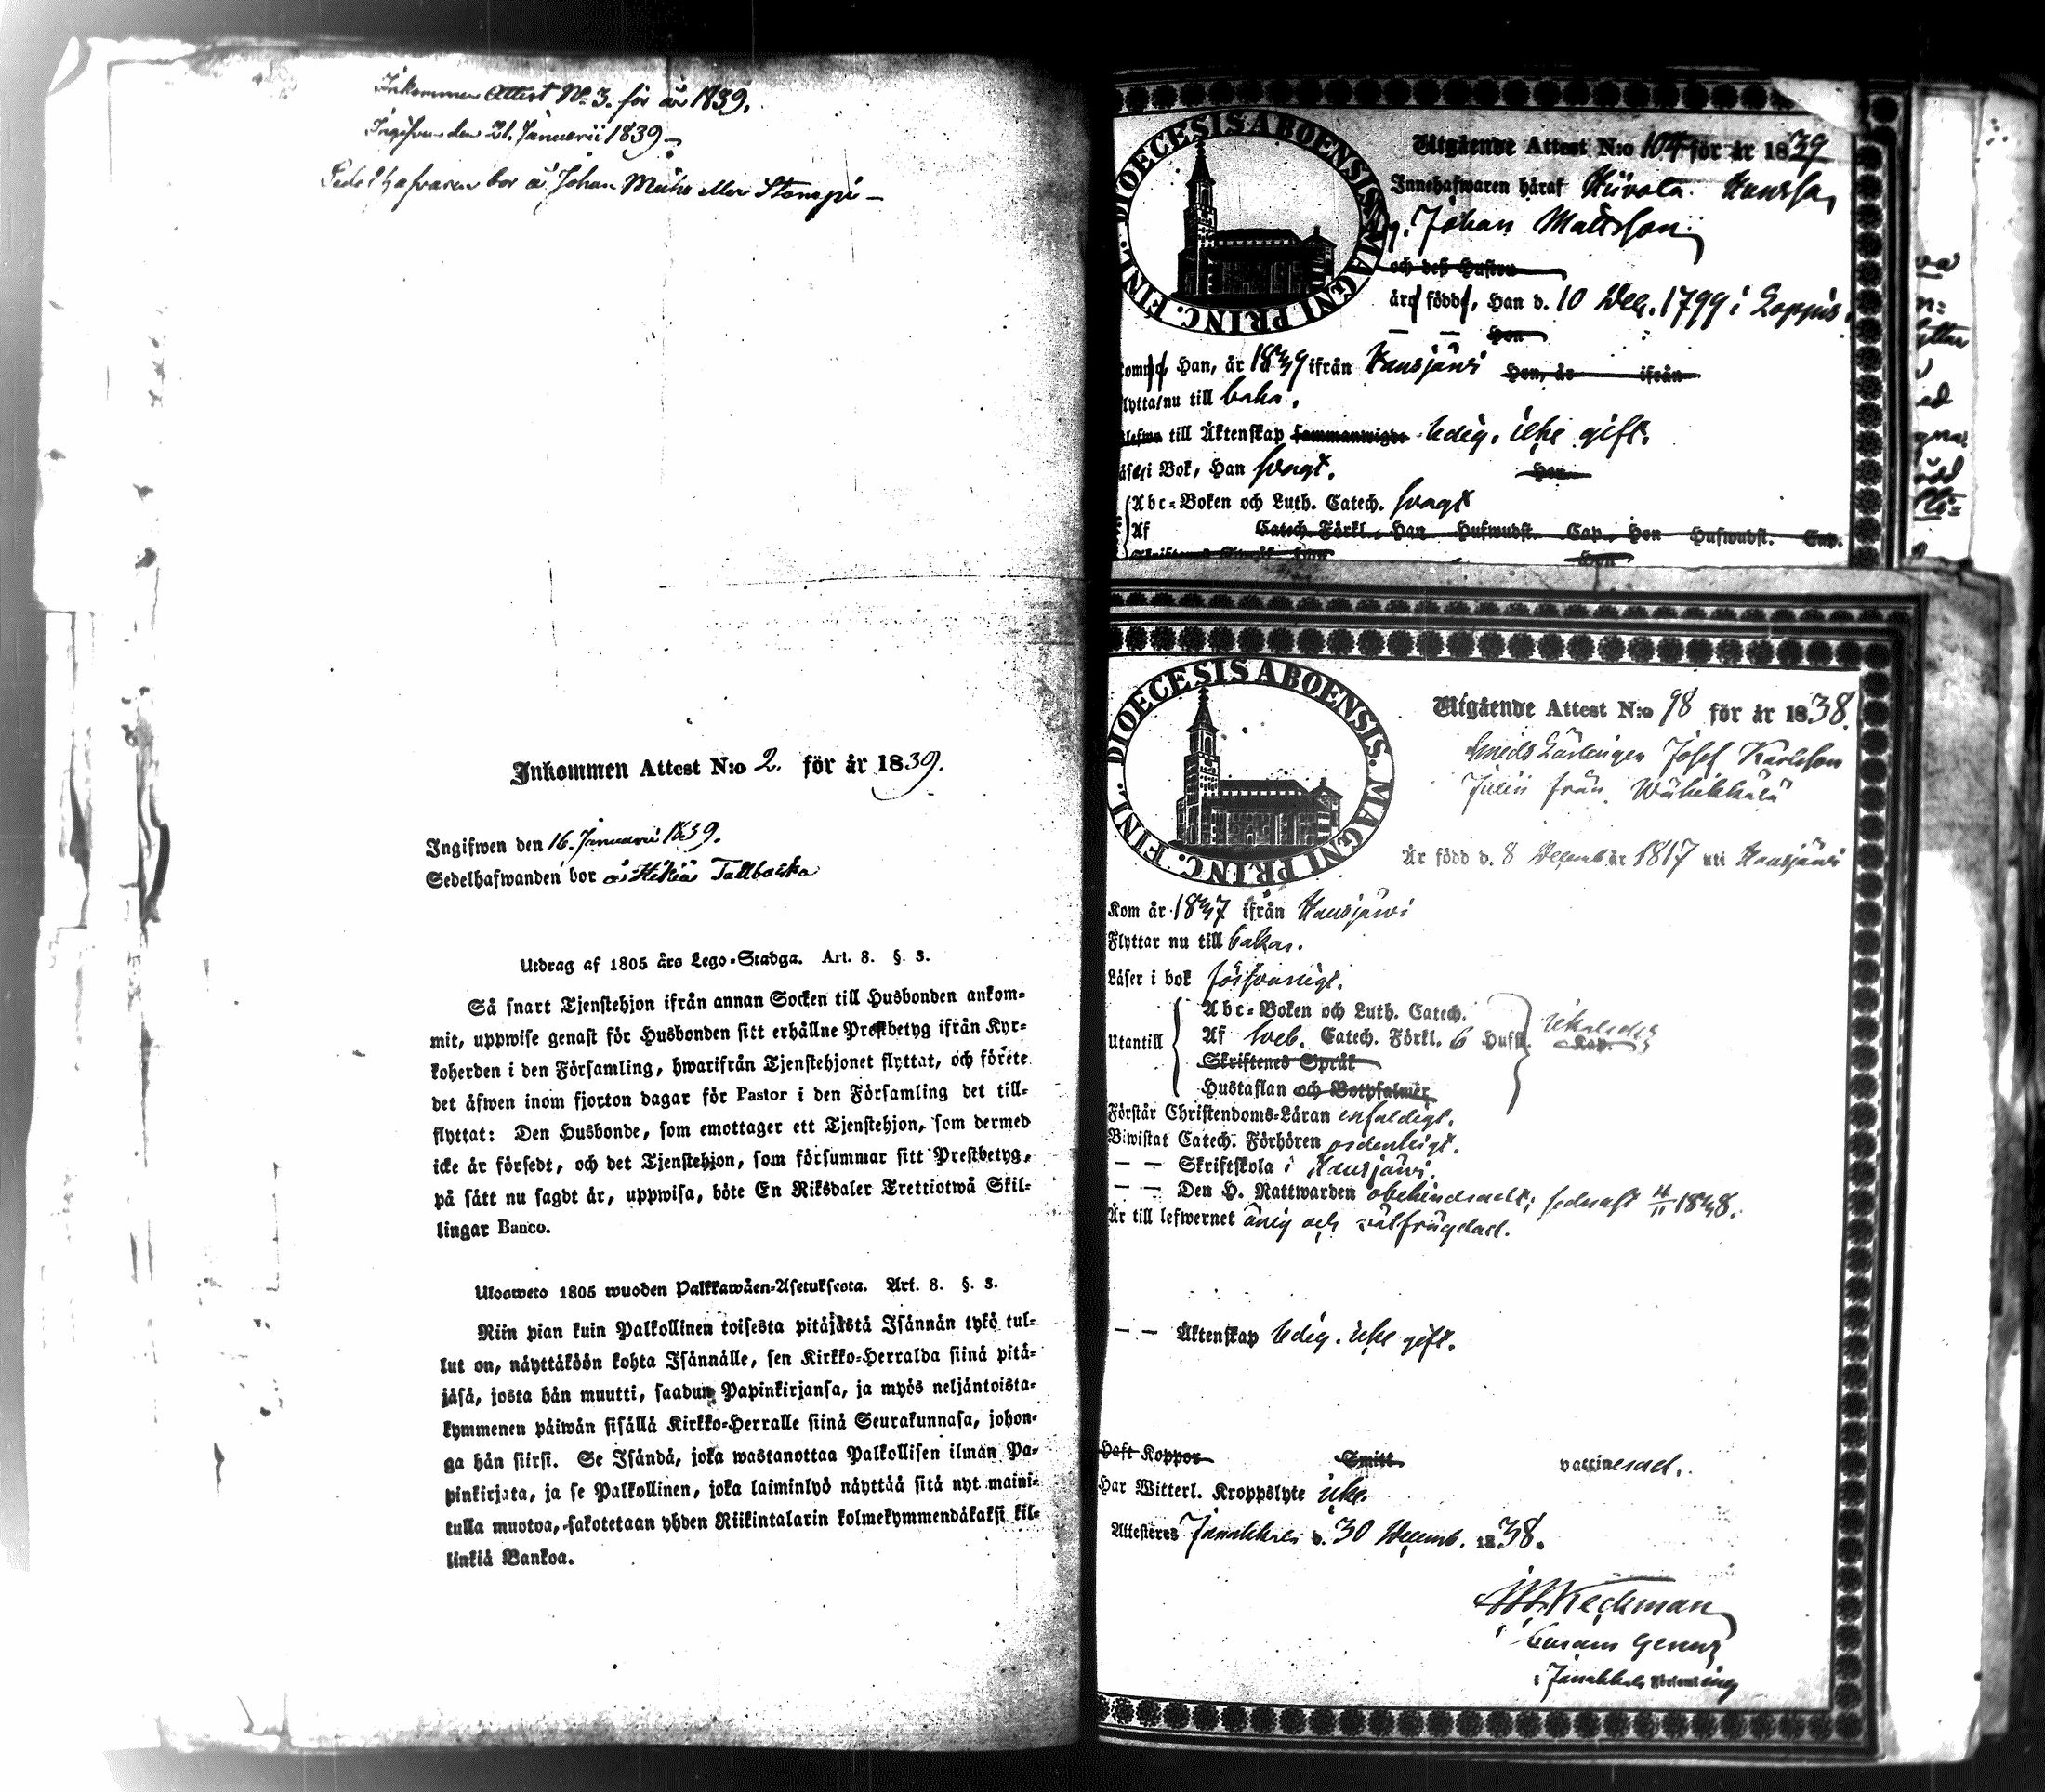 Inkommen Attest No 3. för år 1839.
Ingifven den 21. Januarii 1839 –
Sedelhafvaren bor å Johan eller Stampi –
Inkommen Attest N:o 2. för år 1839.
Ingifwen den 16. Januarii 1839.
Sedelhafwanden bor å Hikiä Tallbacka
Utdrag af 1805 års Lego-Stadga. Art. 8. §. 3.
Så snart Tjenstehjon ifrån annan Socken till Husbonden ankom-
mit, uppwise genast för Husbonden sitt erhållne Prestbetyg ifrån Kyr-
koherden i den Församling, hwarifrån Tjenstehjonet flyttat, och förete
det äfwen inom fjorton dagar för Pastor i den Församling det till-
flyttat: Den Husbonde, som emottager ett Tjenstehjon, som dermed
icke är försedt, och det Tjenstehjon, som försummar sitt Prestbetyg,
på sätt nu sagdt är, uppwisa, böte En Riksdaler Trettiotwå Skil-
lingar Banco.
Ulosweto 1805 wuoden Palkkawäen-Asetuksesta. Art. 8. §. 3.
Niin pian kuin Palkollinen toisesta pitäjästä Isännän tykö tul-
lut on, näyttäköön kohta Isännälle, sen Kirkko-Herralda siinä pitä-
jäsä, josta hän muutti, saadun Papinkirjansa, ja myös neljäntoista-
kymmenen päiwän sisällä Kirkko-Herralle siinä Seurakunnasa, johon-
ga hän siirsi. Se Isändä, joka wastanottaa Palkollisen ilman Pa-
pinkirjata, ja se Palkollinen, joka laiminlyö näyttää sitä nyt maini-
tulla muotoa, sakotetaan yhden Riikintalarin kolmekymmendäkaksi kil-
linkiä Bankoa.
DIOECESIS ABOENSIS. MAGNI PRINC. FINL.
Utgående Attest N:o 104 för år 1839
Innehafwaren häraf
Johan Mattsson
och deß Hustru
äro födde, Han d. 10 Dec. 1799 i Loppis.
– – Hon
komne, Han, år 1839 ifrån Hausjärvi Hon, år ifrån
flytta nu till baka.
till Äktenskap sammanwigde ledig, icke gift.
Läse i Bok, Han svagt. Hon
Abc-Boken och Luth. Catech. svagt
Af Catech. Förkl., Han Hufwudst. Cap. Hon Hufwudst. Cap.
DIOECESIS ABOENSIS. MAGNI PRINC. FINL.
Utgående Attest N:o 98 för år 1838.
Smeds Lärlingen Josef Karlsson
från
Är född d. 8 Decemb år 1817 uti Hausjärvi
Kom år 1837 ifrån Hausjärvi
Flyttar nu till bakar.
Läser i bok försvarligt.
Utantill
Abc-Boken och Luth. Catech.
Af Sveb. Catech. Förkl. 6 Hufst. Kap.
Skriftenes Språk
Hustaflan och Botpsalmer
Förstår Christendoms-Läran enfaldigt.
Biwistat Catech. Förhören ordentligt.
– – Skriftskola i Hausjärvi.
– – Den H. Nattwarden obehindradt; sednast 4/11 1838.
Är till lefwernet ärlig och välfrägdad.
– – Äktenskap ledig. icke gift.
Haft Koppor Smitt vaccinerad.
Har Witterl. Kroppslyte icke.
Attesteras Janakkala d. 30 Decemb. 1838.
Heckman
i Janakkala Församling